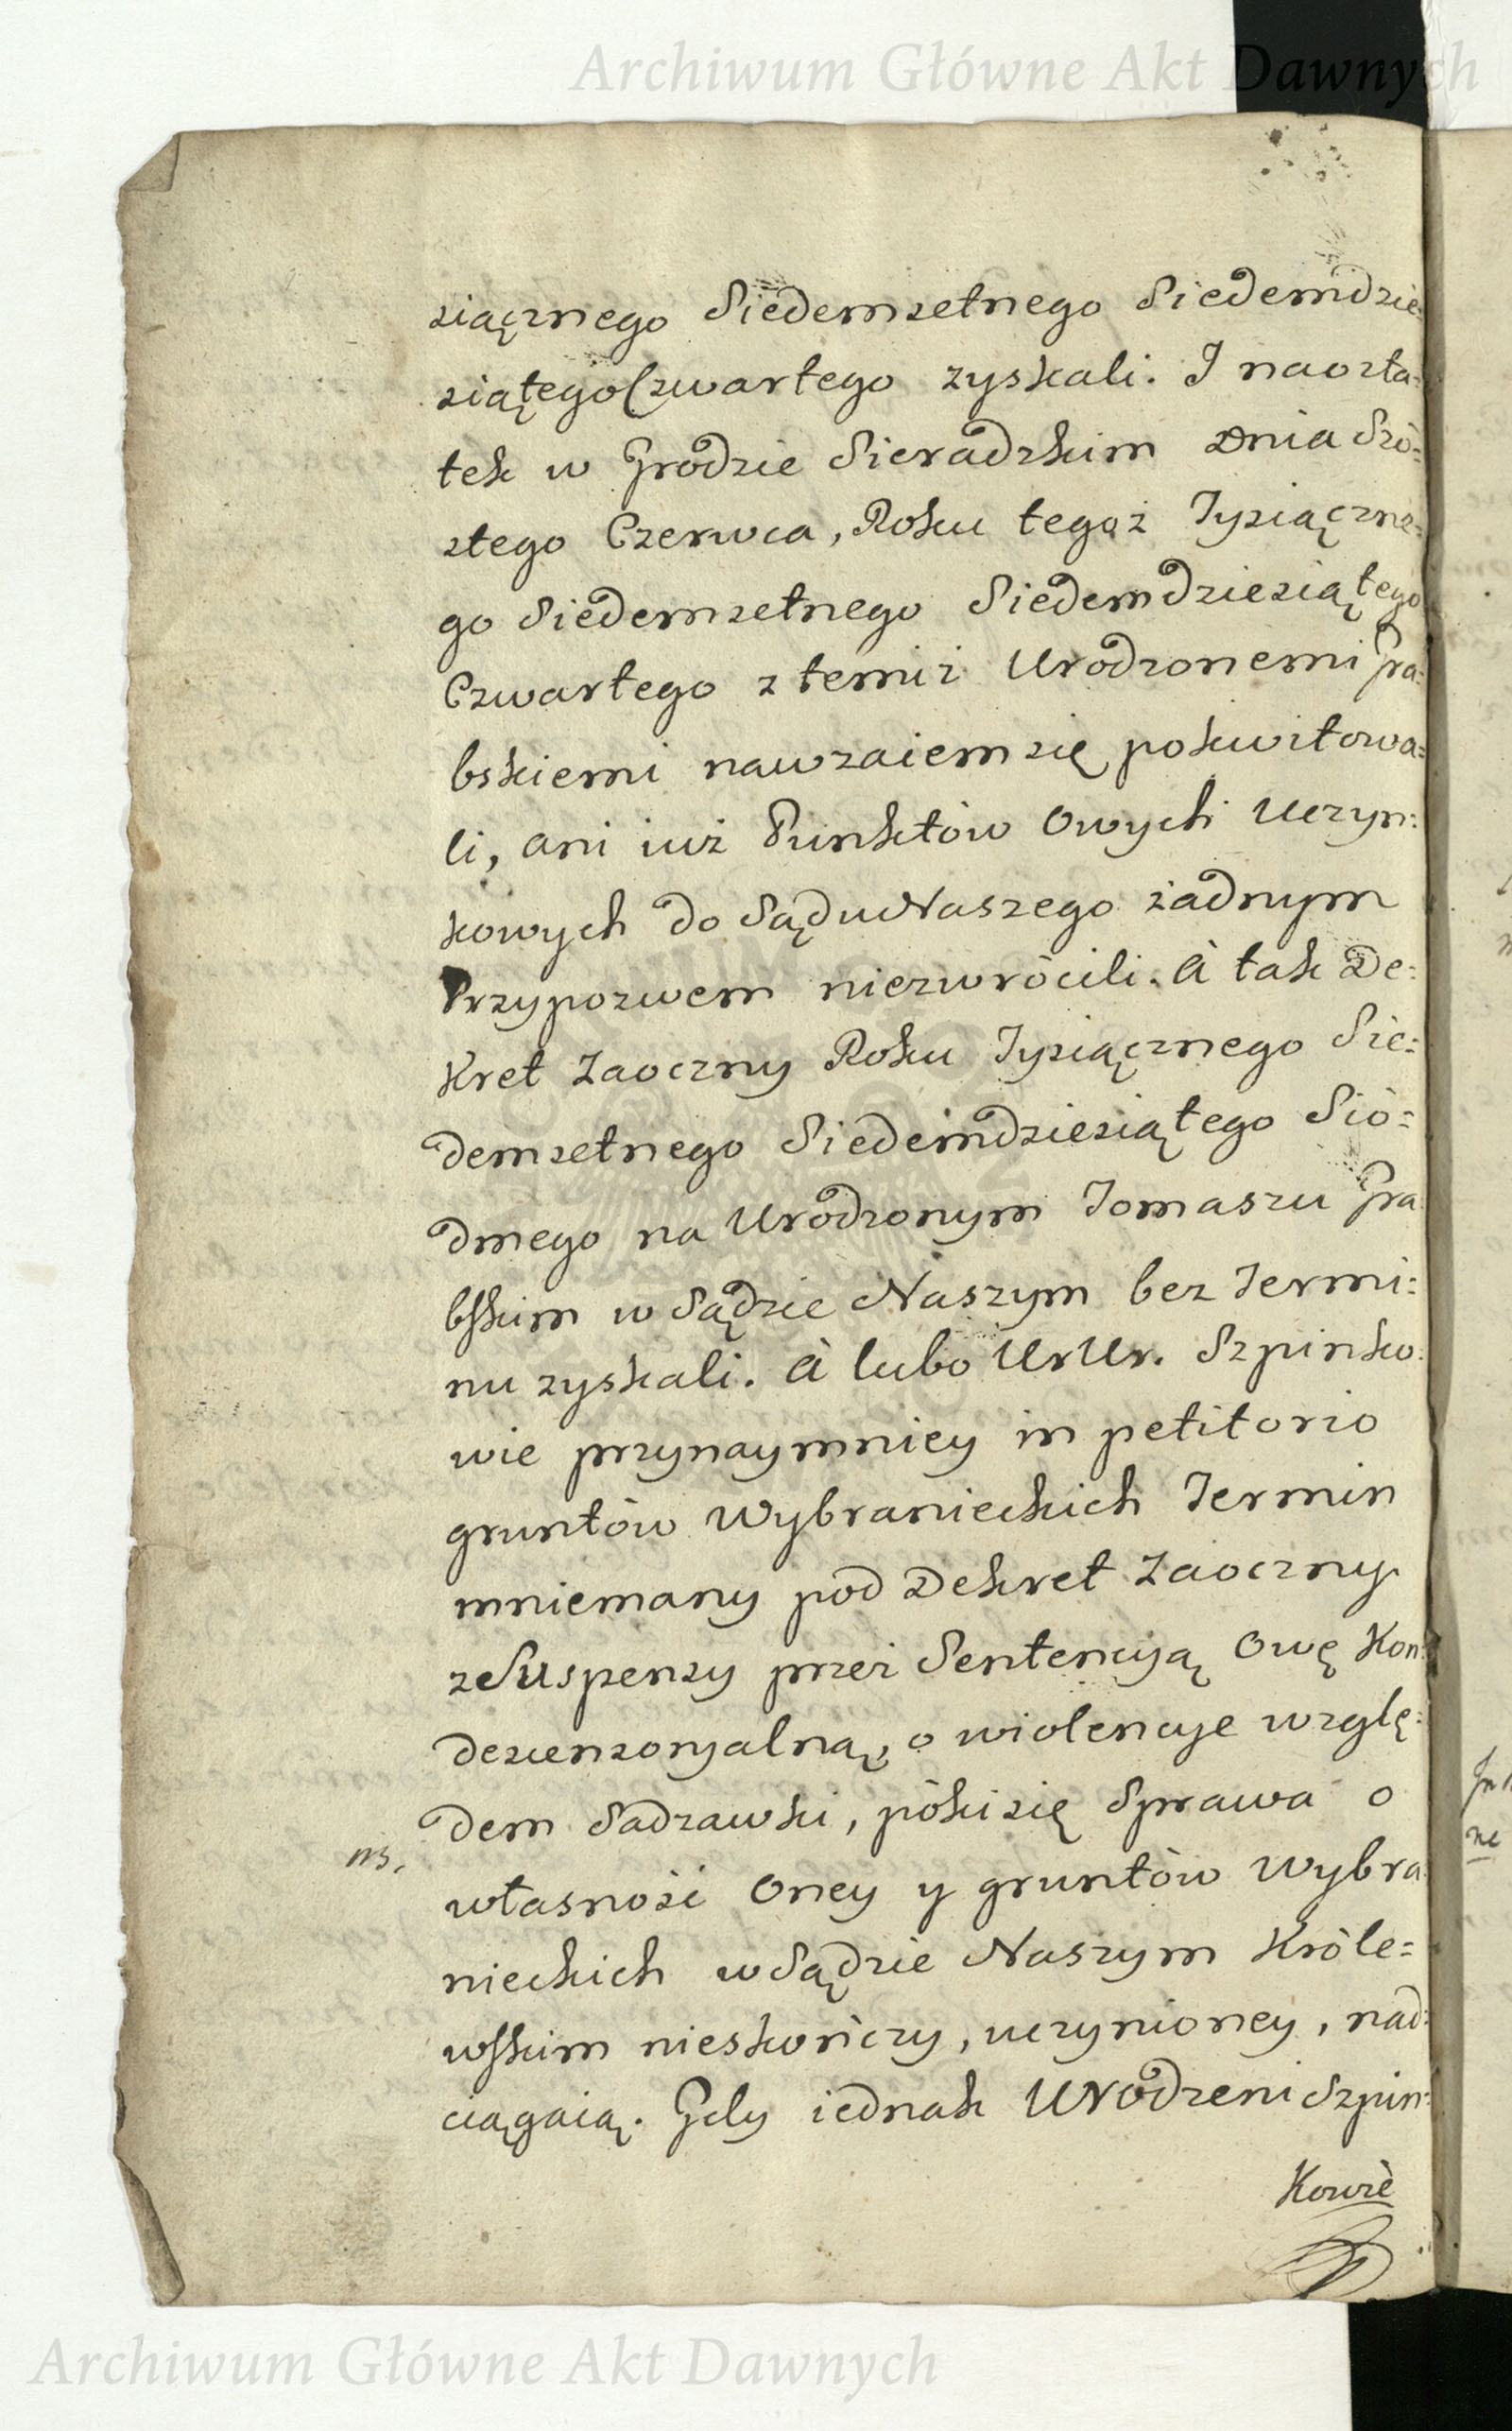 Archiwum Główne Akt Dawnych
siącznego Siedemsetnego Siedemdzie=
siątego Czwartego zyskali. I naosta=
tek w Grodzie Sieradzkim Dnia Szó=
stego Czerwca, Roku tegoż Tysiączne=
go Siedemsetnego Siedemdziesiątego
Czwartego z temiż Urodzonemi Gra=
bskiemi nawzaiem się pokwitowa=
li, ani iuż Punktów Owych Uczyn=
kowych do Sądu Naszego żadnym
Przypozwem niezwrócili. A tak De=
kret Zaoczny Roku Tysiącznego Sie=
demsetnego Siedemdziesiątego Sió=
dmego na Urodzonym Tomaszu Gra
bskim w Sądzie Naszym bez Termi=
nu zyskali. A lubo UrUr. Szpinko=
wie przynaymniey in petitorio
gruntów Wybranieckich Termin
mniemany pod Dekret Zaoczny
z Suspensy przez Sentencyą Owę Kon=
descensoryalną, o wiolencye wzglę=
dem Sadzawki, póki się Sprawa o
ns,
własność Oney y gruntów Wybra=
nieckich w Sądzie Naszym Króle=
wskim nieskończy, uczynioney, nad=
ciągaią. Gdy iednak Urodzeni Szpin=
Kowie
Archiwum Główne Akt Dawnych